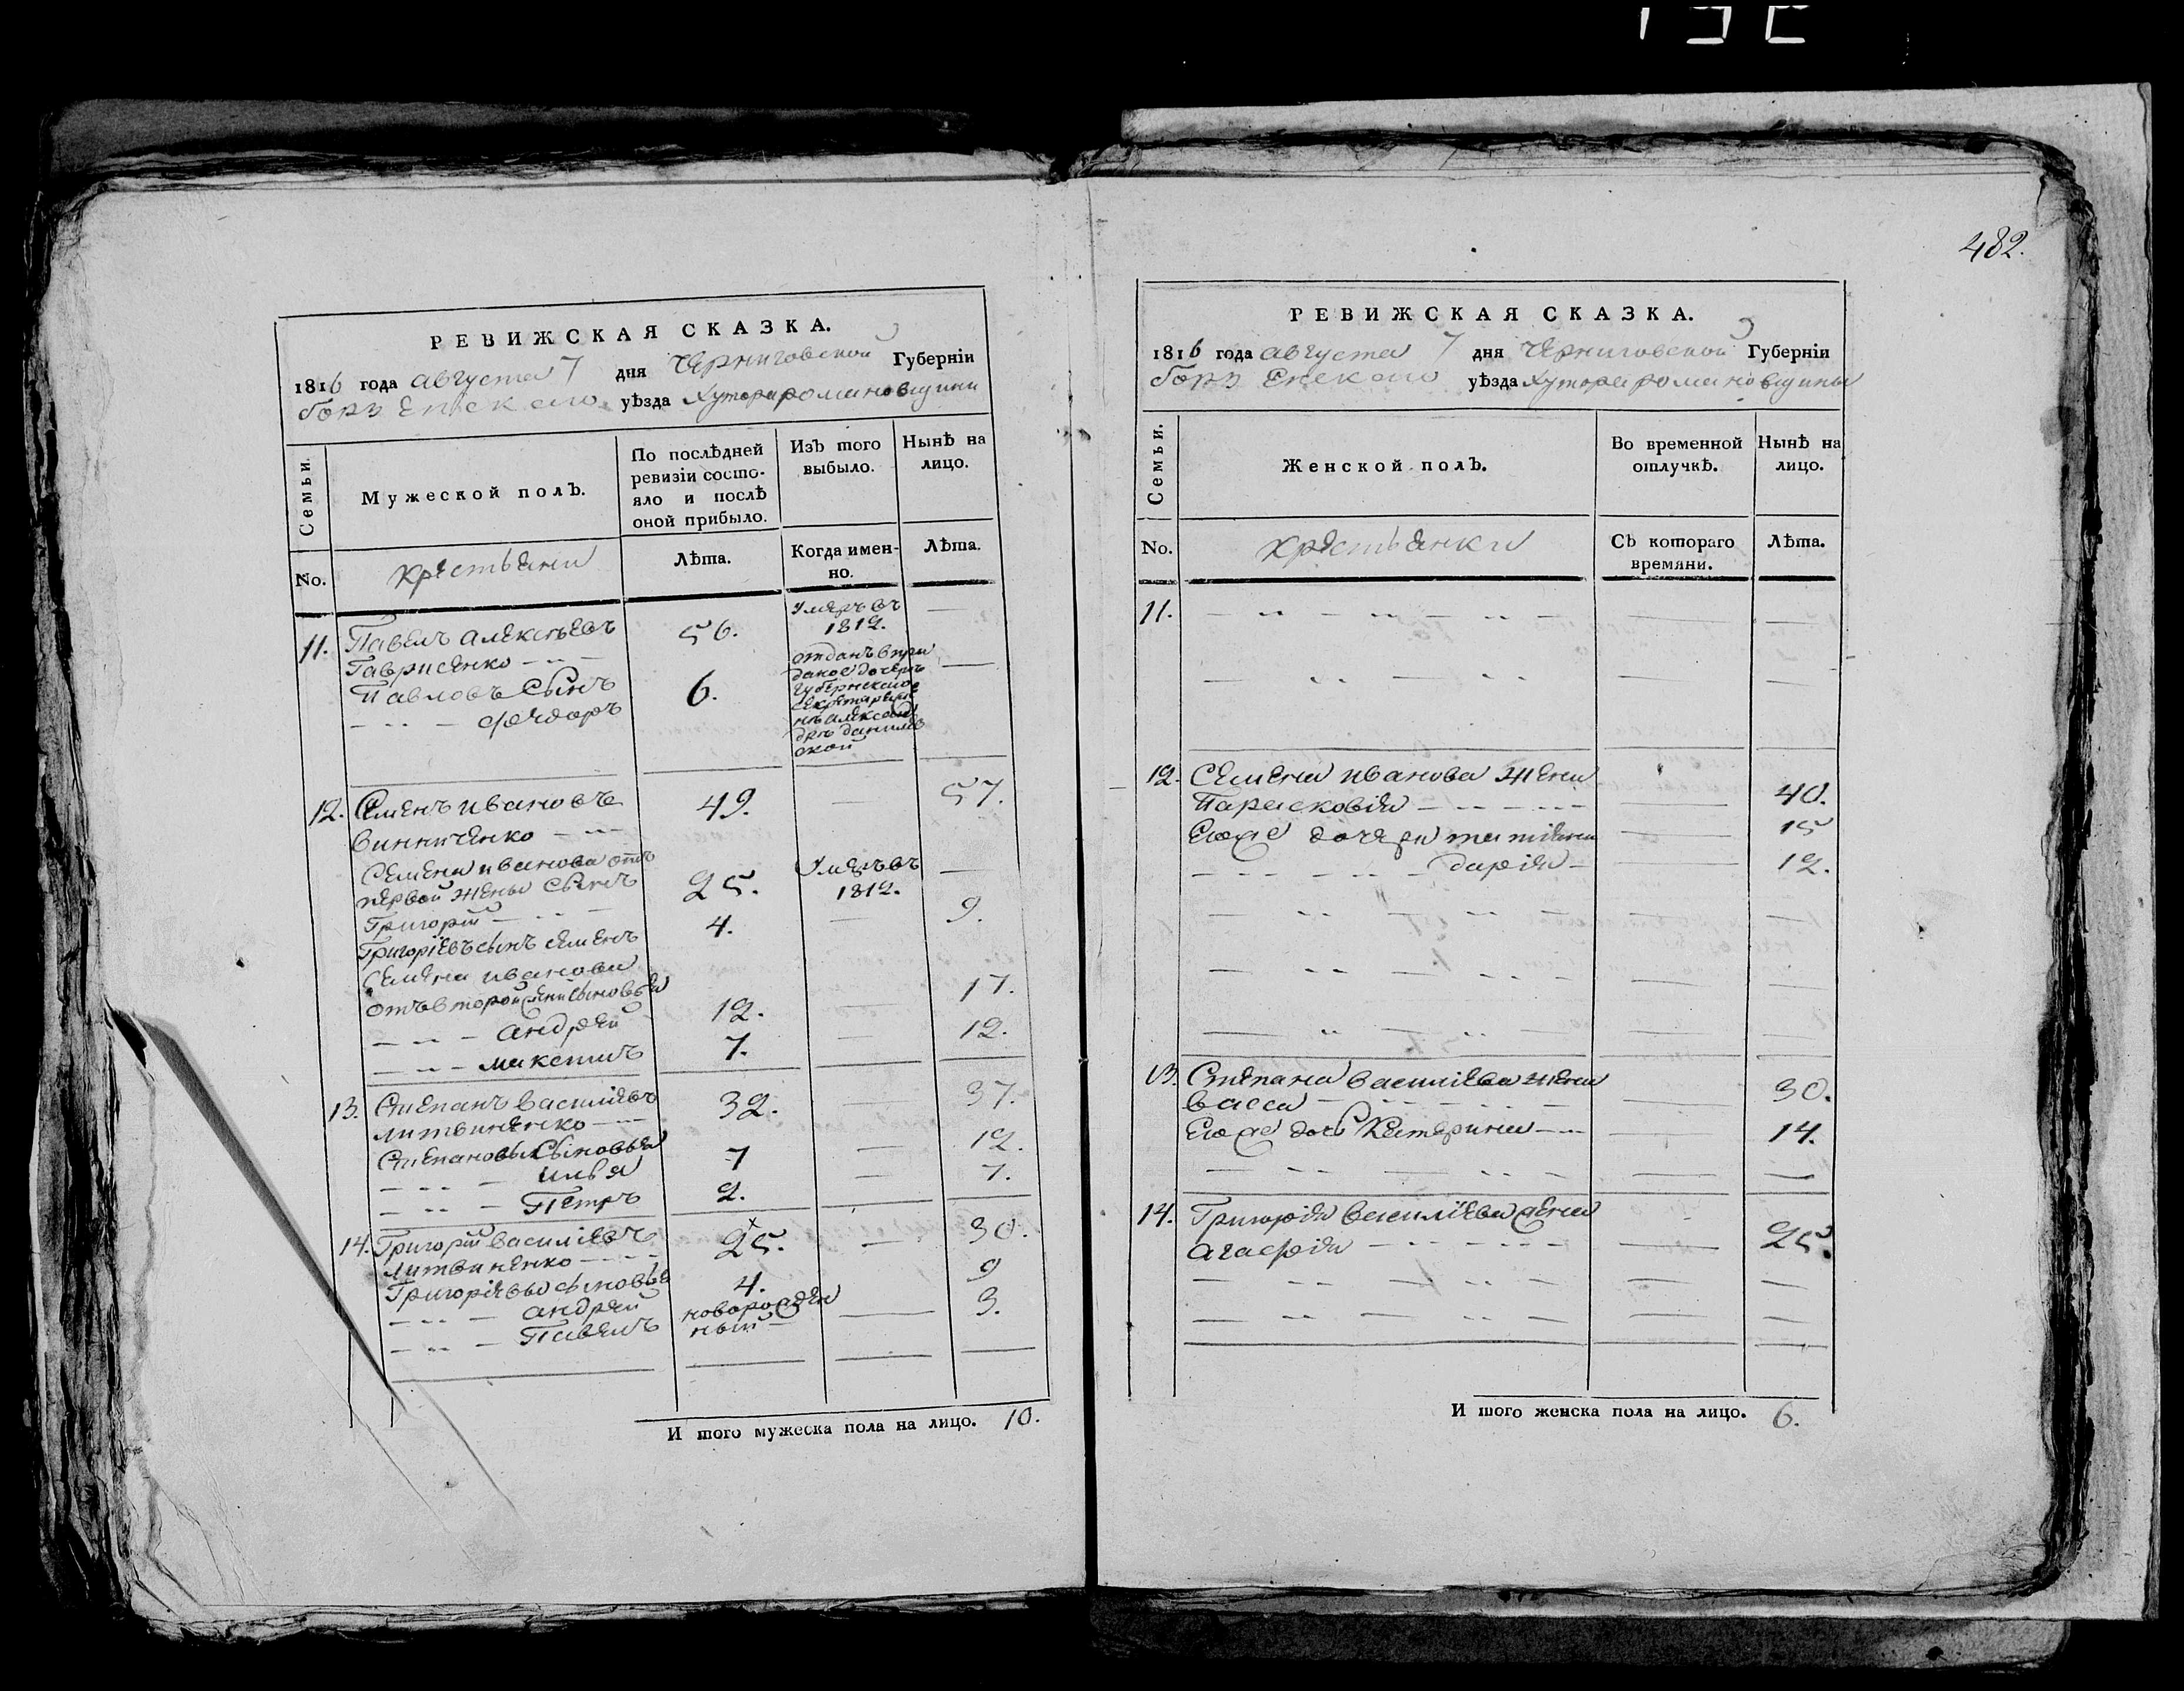 482.
РЕВИЖСКАЯ СКАЗКА.
1816 года августа 7 дня Черниговской Губернїи
борзенского уѣзда Хутора романовщини
Семьи.
Мужеской полЪ.
По послѣдней ревизїи состояло и послѣ оной прибыло.
ИзЪ того выбыло.
Нынѣ на лицо.
No.
крестьяни
Лѣта.
Когда именно.
Лѣта.
11. Павелъ алексѣевъ 56. Умеръ въ —
Гаврисенко 1812.
Павловъ Сынъ 6. отданъ в при —
федоръ даное дочеръ
губернского
секретаря
александ
дръ данилев
ской
12. Семенъ ивановъ 49. — 57.
винниченко
Семена иванова отъ
первой жены сынъ 25. Умеръ въ —
Григорій 1812.
Григоріевъ сынъ семенъ 4. — 9.
Семена иванова
отъ второй жени сыновья
андрей 12. — 17.
максимъ 7. — 12.
13. Степанъ василіевъ 32. — 37.
литвиненко
Степановы Сыновья
илья 7 — 12.
Петръ 2. — 7.
14. Григорій василіевъ 25. — 30.
литвиненко
Григоріевы сыновья
андрей 4. 9
Павелъ новорожден — 3.
ный
И того мужеска пола на лицо. 10.
РЕВИЖСКАЯ СКАЗКА.
1816 года августа 7 дня Черниговской Губернїи
борзенского уѣзда Хутора романовщины
Семьи.
Женской полЪ.
Во временной отлучкѣ.
Нынѣ на лицо.
No.
крестьянки
СЬ котораго времяни.
Лѣта.
11.
12. Семена иванова жена
Парасковія — 40.
Еюже дочери татіяна — 15
дарія — 12.
13. Степана василіева жена — 30.
васса
Еюже дочь Катерина 14.
14. Григорія василіева жена
агафія — 25.
И того женска пола на лицо. 6.